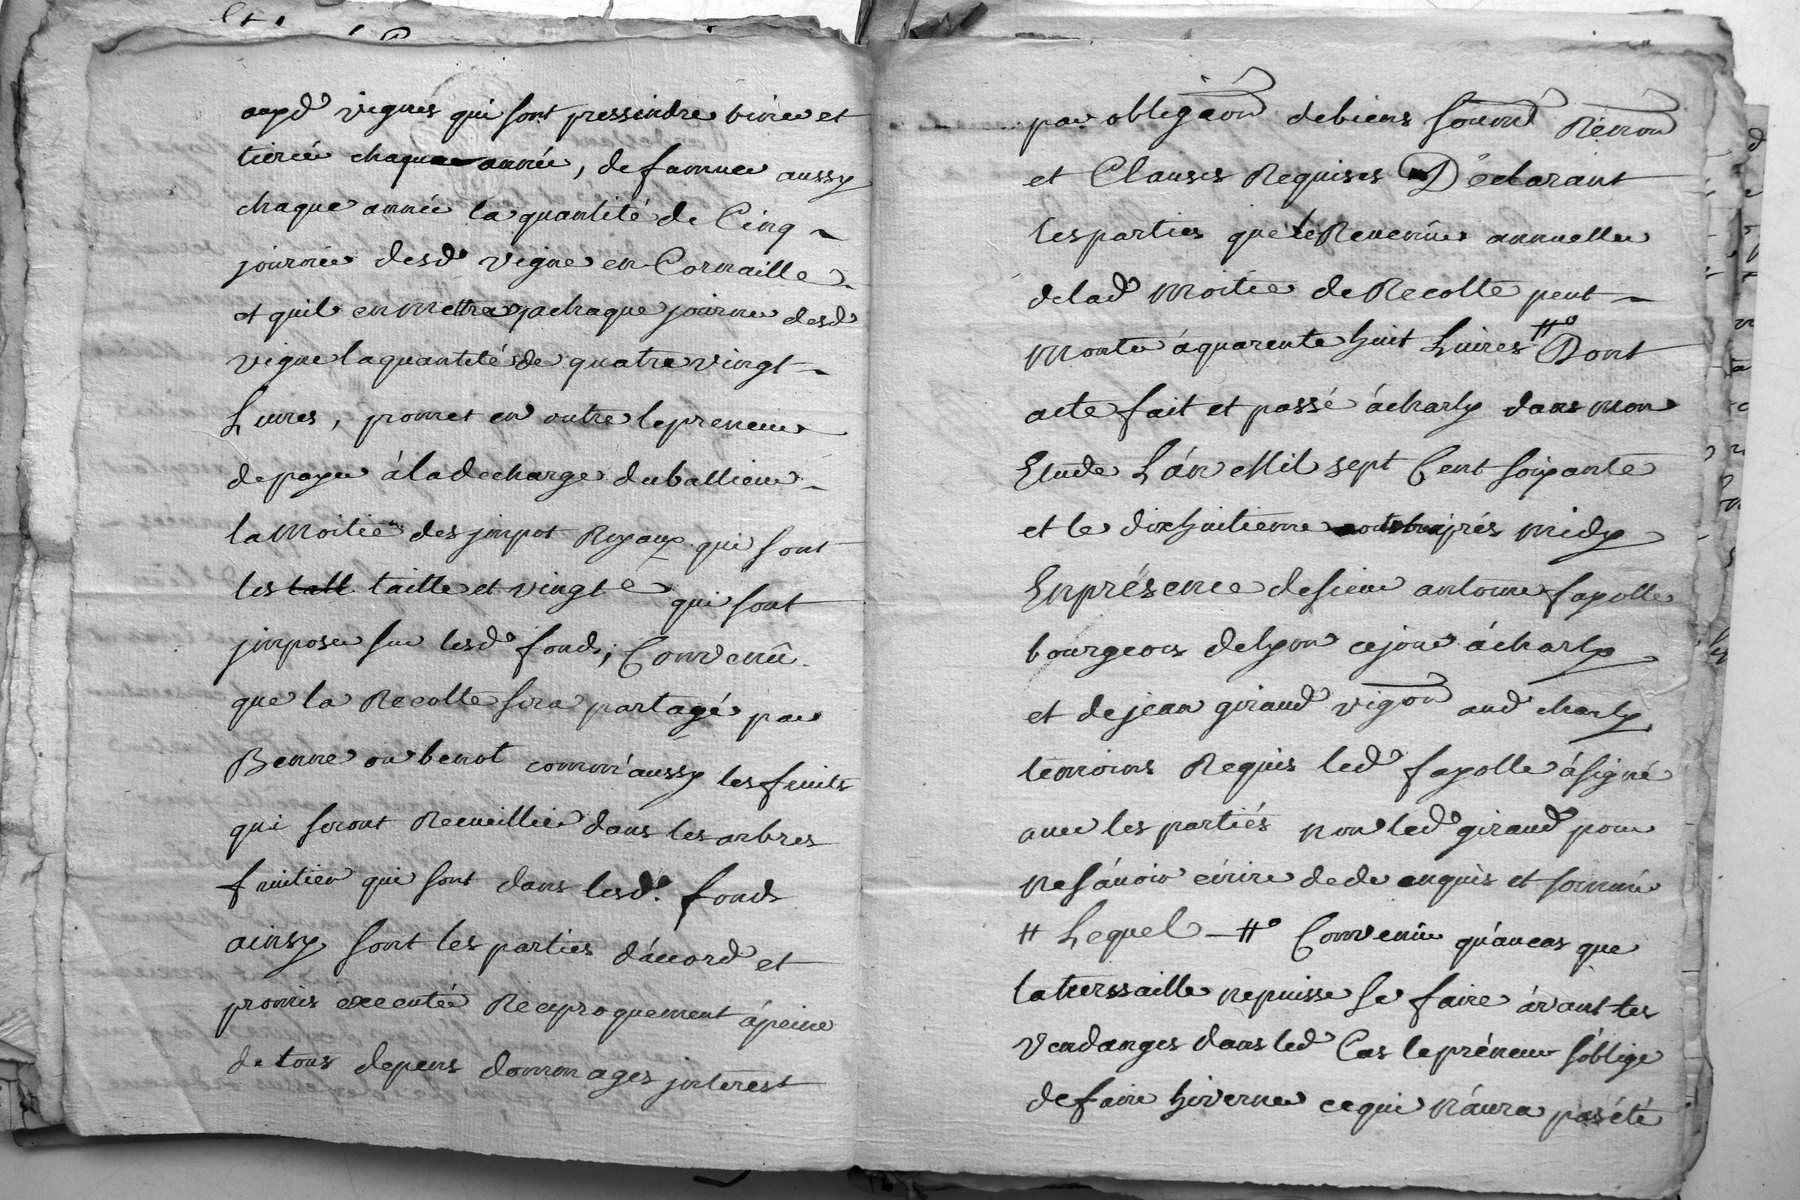 auxd vignes qui sont pressindre binée et
tierceé chaque année, de famuer aussy
chaque année la quantité de Cinq
journée desd vigne en Cornaille
et quil en mettra à chaque journe desd
vigne la quantité de quatre vingt
Livres, promet en outre le preneur
de payer à la decharge du bailleur
la Moitiée des jmpot Royaux qui sont
les taill taille et vingt e qui sont
jmposer sur lesd fonds; Convenû
que la Recolte sera partagé par
Benne ou benot comm'aussy les fruits
qui seront Recueillie dans les arbres
fruitier qui sont dans lesd. fonds
ainsy sont les parties d'accord et
promis executée Réciproquement à peine
de tous depens dommages jnterest
par obligaon de biens soumn Rénon
et Clauses Requises Déclarant
les parties que le Revenûe annuelle
de lad Moitiée de Recolte peut
Monter à quarente huit Livres # Dont
acte fait et passé à charly dans mon
Etude L'án Mil sept Cent soixante
et le dixhuitieme après midy
En présence de sieur antoine fayolle
bourgeois de lyon ce jour à charly
et de jean giraud vigon aud charly
temoins Requis led fayolle à signé
avec les partiés non led giraud pour
ne sávoir écrire de de enquis et sommé
# Lequel - # Convenûe qu'au cas que
la tierssaille ne puisse se faire àvant les
Vendanges dans led Cas le préneur s'oblige
de faire hiverner ce qui n'áura pas été